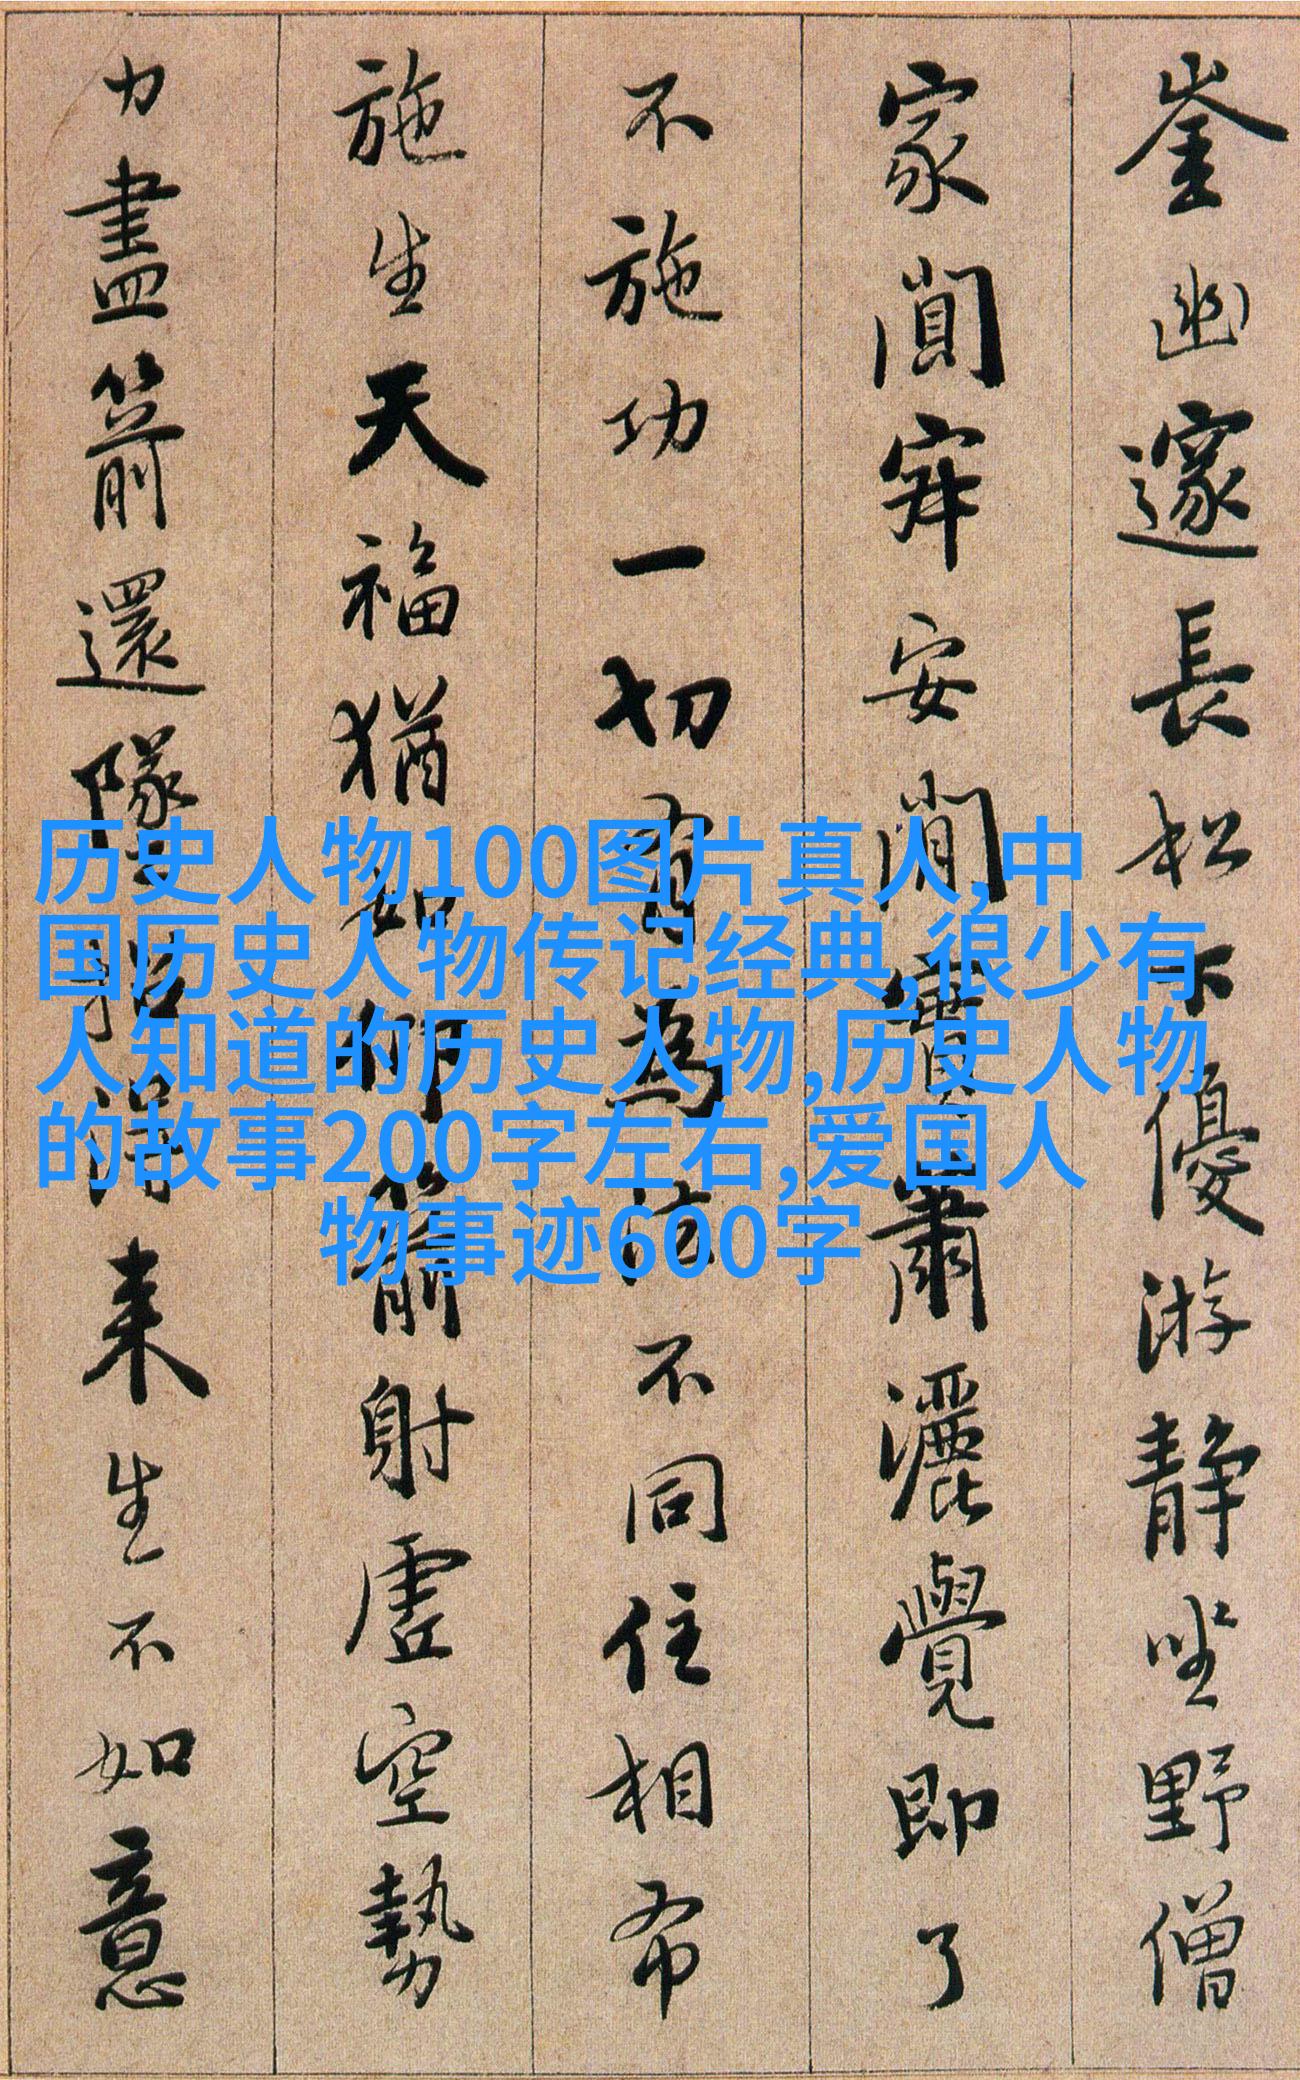 崟幽邃長松下優游靜坐野僧
家闃寂安閒實蕭灑覺即了
不施功一切有為法不同住相布
施生天福猶如仰箭射虛空勢
力盡箭還墜招得來生不如意
历史人物100图片真人,中
国历史人物传记经典,很少有
人知道的历史人物,历史人物
的故事200字左右,爱国人
物事迹600字